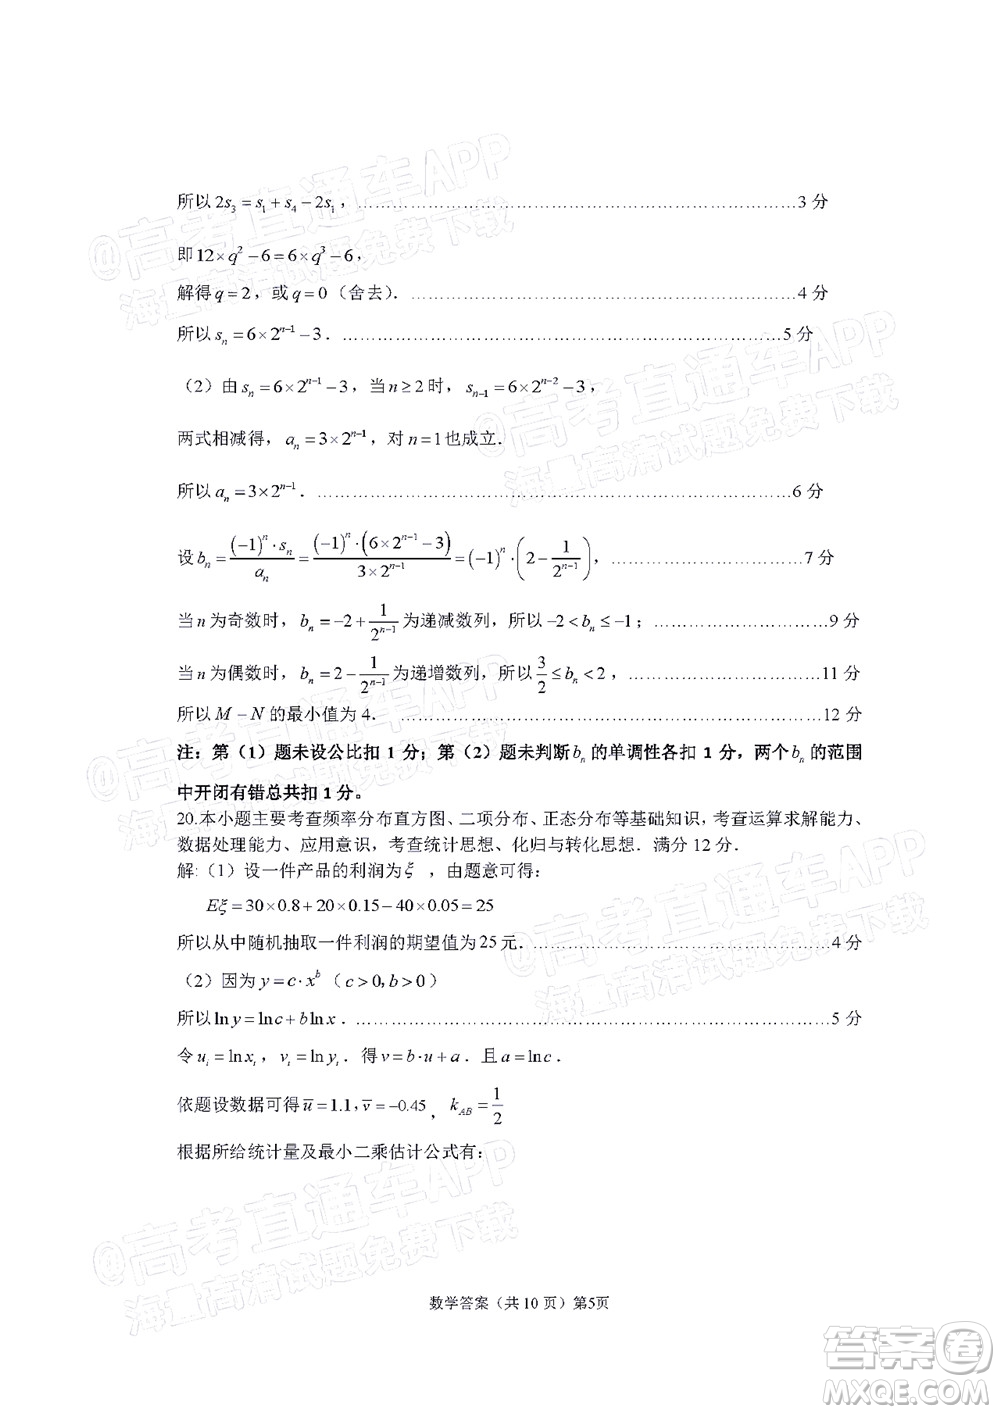 所以 2s₃ = s₁ + s₄ − 2s₁，………………………………………………………………3 分
即 12×q² − 6 = 6×q³ − 6，
解得 q = 2，或 q = 0（舍去）．………………………………………………………4 分
所以 sₙ = 6×2ⁿ⁻¹ − 3．……………………………………………………………………5 分
（2）由 sₙ = 6×2ⁿ⁻¹ − 3，当 n ≥ 2 时，sₙ₋₁ = 6×2ⁿ⁻² − 3，
两式相减得，aₙ = 3×2ⁿ⁻¹，对 n = 1 也成立．
所以 aₙ = 3×2ⁿ⁻¹．………………………………………………………………………6 分
设 bₙ = (−1)ⁿ·sₙ / aₙ = (−1)ⁿ·(6×2ⁿ⁻¹ − 3) / (3×2ⁿ⁻¹) = (−1)ⁿ·(2 − 1/2ⁿ⁻¹)，………………………………7 分
当 n 为奇数时，bₙ = −2 + 1/2ⁿ⁻¹ 为递减数列，所以 −2 < bₙ ≤ −1；…………………………9 分
当 n 为偶数时，bₙ = 2 − 1/2ⁿ⁻¹ 为递增数列，所以 3/2 ≤ bₙ < 2，……………………………11 分
所以 M − N 的最小值为 4． ……………………………………………………………12 分
注：第（1）题未设公比扣 1 分；第（2）题未判断 bₙ 的单调性各扣 1 分，两个 bₙ 的范围
中开闭有错总共扣 1 分。
20.本小题主要考查频率分布直方图、二项分布、正态分布等基础知识，考查运算求解能力、
数据处理能力、应用意识，考查统计思想、化归与转化思想．满分 12 分．
解:（1）设一件产品的利润为 ξ ，由题意可得：
Eξ = 30×0.8 + 20×0.15 − 40×0.05 = 25
所以从中随机抽取一件利润的期望值为 25 元．…………………………………………4 分
（2）因为 y = c·xᵇ（c > 0, b > 0）
所以 ln y = ln c + b ln x．…………………………………………………………………5 分
令 uᵢ = ln xᵢ，vᵢ = ln yᵢ．得 v = b·u + a．且 a = ln c．
依题设数据可得 u̅ = 1.1, v̅ = −0.45，k_AB = 1/2
根据所给统计量及最小二乘估计公式有：
数学答案（共 10 页）第5页
@高考直通车APP
海量高清试题免费下载
答案卷
MXQE.COM